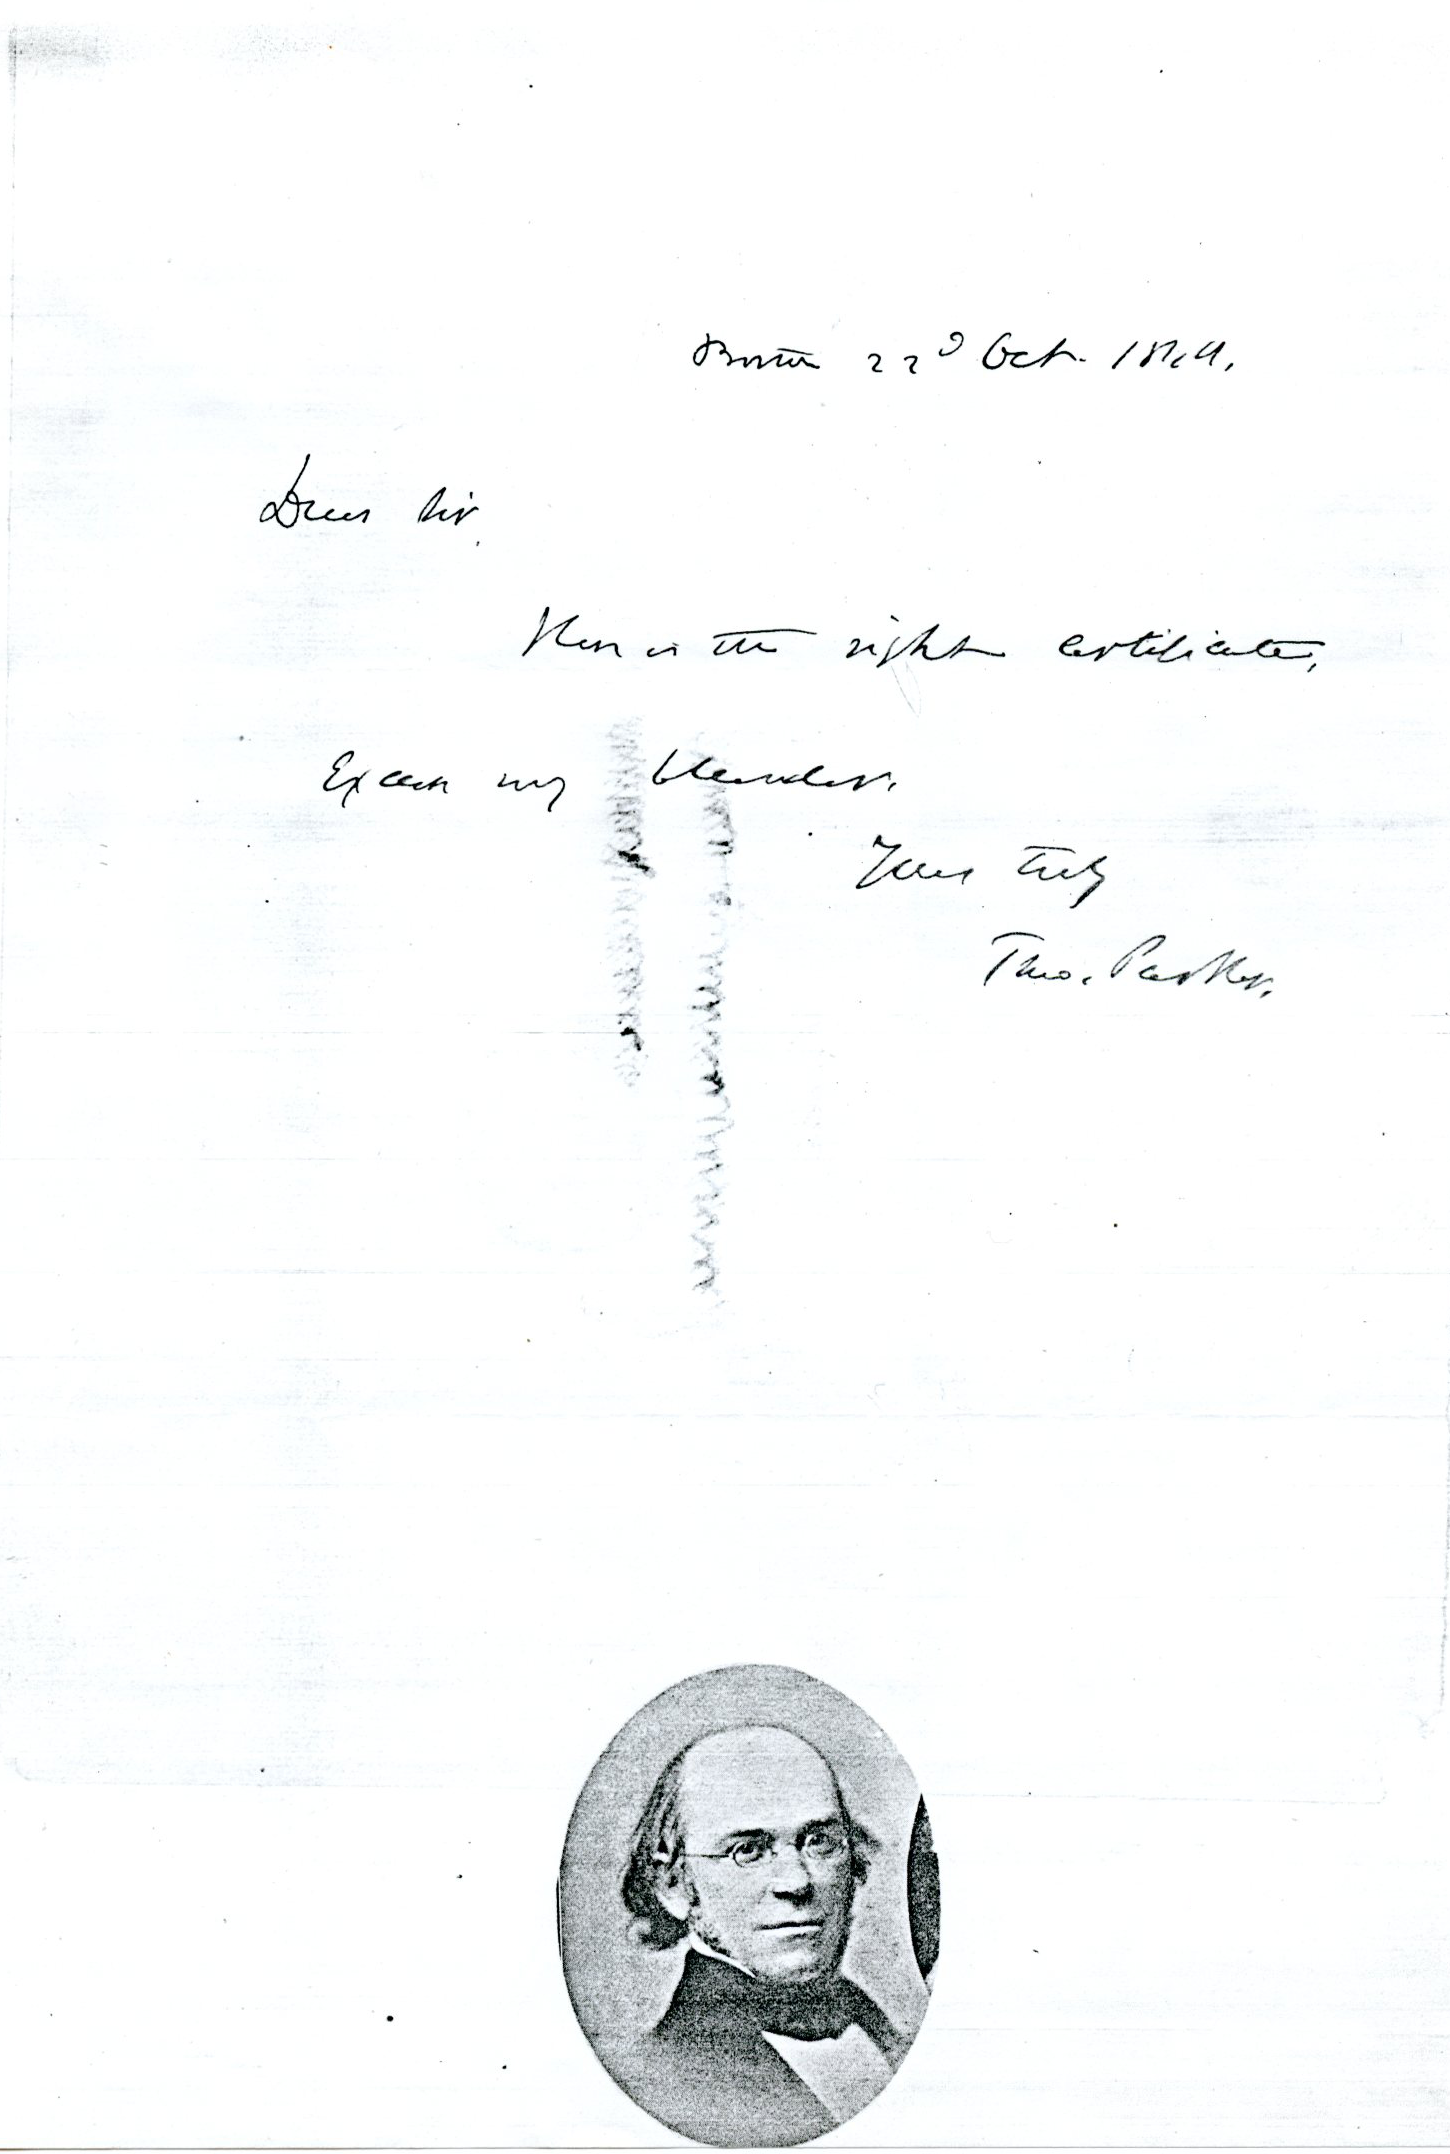 Boston 22d Oct.
Dear Sir.
Here is the right certificate,
Excuse my blunder.
Yours truly
Theo. Parker.